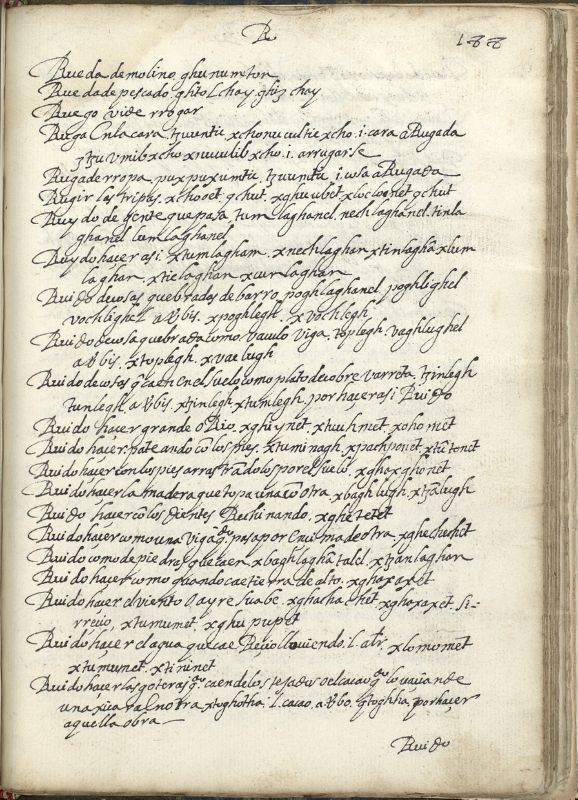 R
188
Rueda de molino, ghunumtor
Rueda de pescado, ghitol chay, ghiz chay
Ruego vide rrogar
Ruga en la cara tzuuntic xcho nucultic xcho .i. cara aRugada
tzuvnib xcho xnuuulib xcho .i. arrugarse
Ruga de rropa, puxpuxuntic, tzuuntic .i. cosa aRugada
Rugir las tripas, xchooet, qchut, xghuubet xlocloonet pchut
Ruydo de gente que pasa tum laghanel. nechlaghanel. tinla
ghanel lumlaghanel
Ruydo hacer asi. xtumlagham. xnechlaghan xtinlaghã xlum
laghan. xticlaghan xcurlaghan
Ruido de cosas quebradas de barro, poghlaghanel, poghlighel
vochlighel a Vbis. xpoghlegh. xvochlegh
Ruido de cosa quebrada como vaculo viga. toplegh. vaghlughel
a Vbis. xtoplegh. xvaelugh
Ruido de cosas q̃ caen en el suelo como plato de cobre varreta, tzinlegh
tunlegh. a Vbis. xtzinlegh xtumlegh, por hacer asi Ruido
Ruido hacer grande o Rio, xghiynet, xtuuhmet xohomet
Ruido hacer pateando cõ los pies. xtuminagh. xpachponet xtũtonet
Ruido hacer con los pies arrastrãdolos por el suelo. xghoxghonet
Ruido hacer la madera que topa una cõ otra. xbaghlugh, xtzãlugh
Ruido hacer cõ los dientes Rechinando. xghetetet
Ruido hacer como una viga q̃do pasa por encima de otra, xghechechet
Ruido como de piedras que caen, xbaghlaghã talel. xtzanlaghan
Ruido hacer como quando cae tierra de alto. xghaxaxet
Ruido hacer el viento o ayre suabe. xghachachet. xghaxaxet. si
rrecio, xtumumet. xghupupet
Ruido hacer el agua que cae Recio lloviendo. l. alr. xlomomet
xtumunet. xtininet
Ruido hacer las goteras q̃do caen de los tejados o el cacao q̃do lo vacian de
una xicara en otra xtoghotha: l. cacao. a Vbo. qtoghtia, por hacer
aquella obra —
Ruido